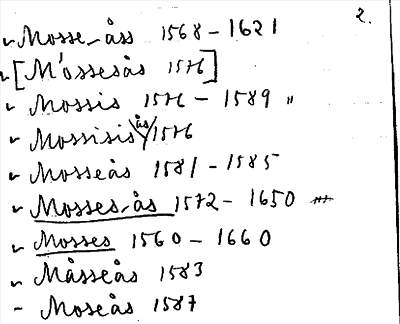 2.
✓ Mosse-åss 1568 – 1621
✓ [M'ossesås 1576]
✓ Mossis 1576 – 1589 "
✓ Mossisis ås 1576
✓ Mosseås 1581 – 1585
✓ Mosses-ås 1572 – 1650
✓ Mosses 1560 – 1660
✓ Måsseås 1583
– Moseås 1587